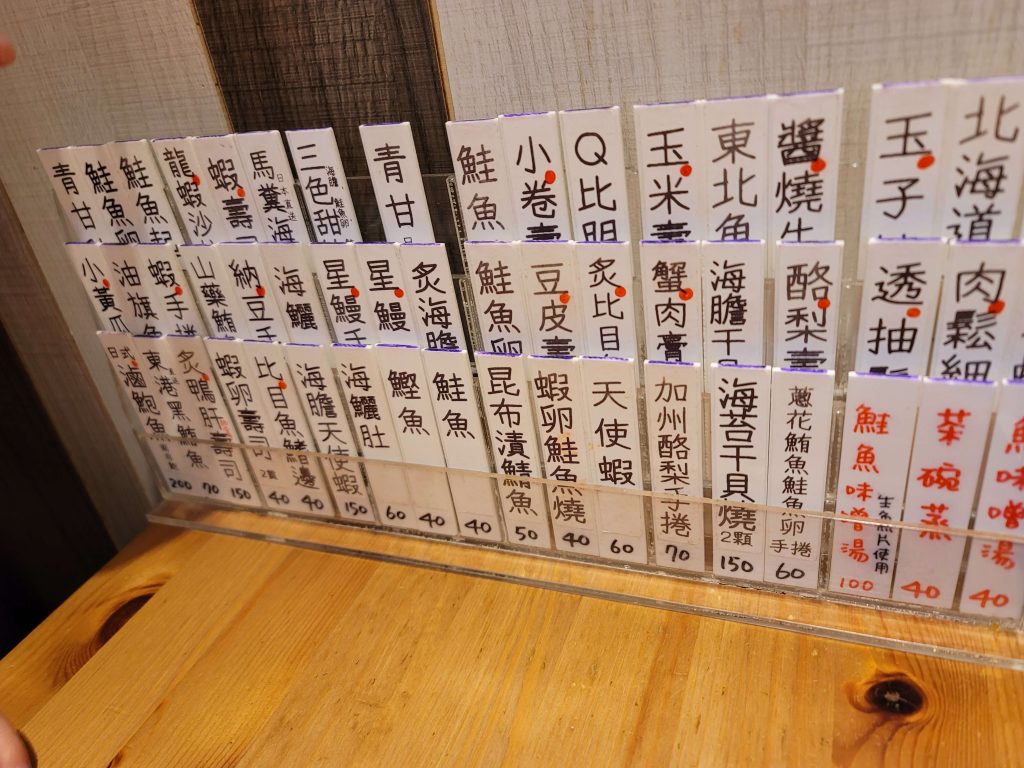 青甘
鮭魚卵
鮭魚起
龍蝦沙
蝦壽司
馬糞海
日本直送
三色甜
海膽 鮭魚卵
青甘
鮭魚
小卷壽
Q比目
玉米壽
東北魚
醬燒牛
玉子
北海道
小黃瓜
油旗魚
蝦手捲
山藥鮪
納豆手
海鱺
星鰻手
星鰻
炙海膽
鮭魚卵
豆皮壽
炙比目
蟹肉膏
海膽干貝
酪梨壽
透抽
肉鬆細
日式滷鮑魚
200
東港黑鮪魚
70
炙鴨肝壽司
150
蝦卵壽司
40
比目魚鰭邊
2貫
40
海膽天使蝦
150
海鱺肚
60
鰹魚
40
鮭魚
40
昆布漬鯖魚
50
蝦卵鮭魚燒
40
天使蝦
60
加州酪梨手捲
70
海苔干貝燒
2顆
150
蔥花鮪魚鮭魚卵
手捲
60
鮭魚味噌湯
生魚片使用
100
菜碗蒸
40
魚味噌湯
40